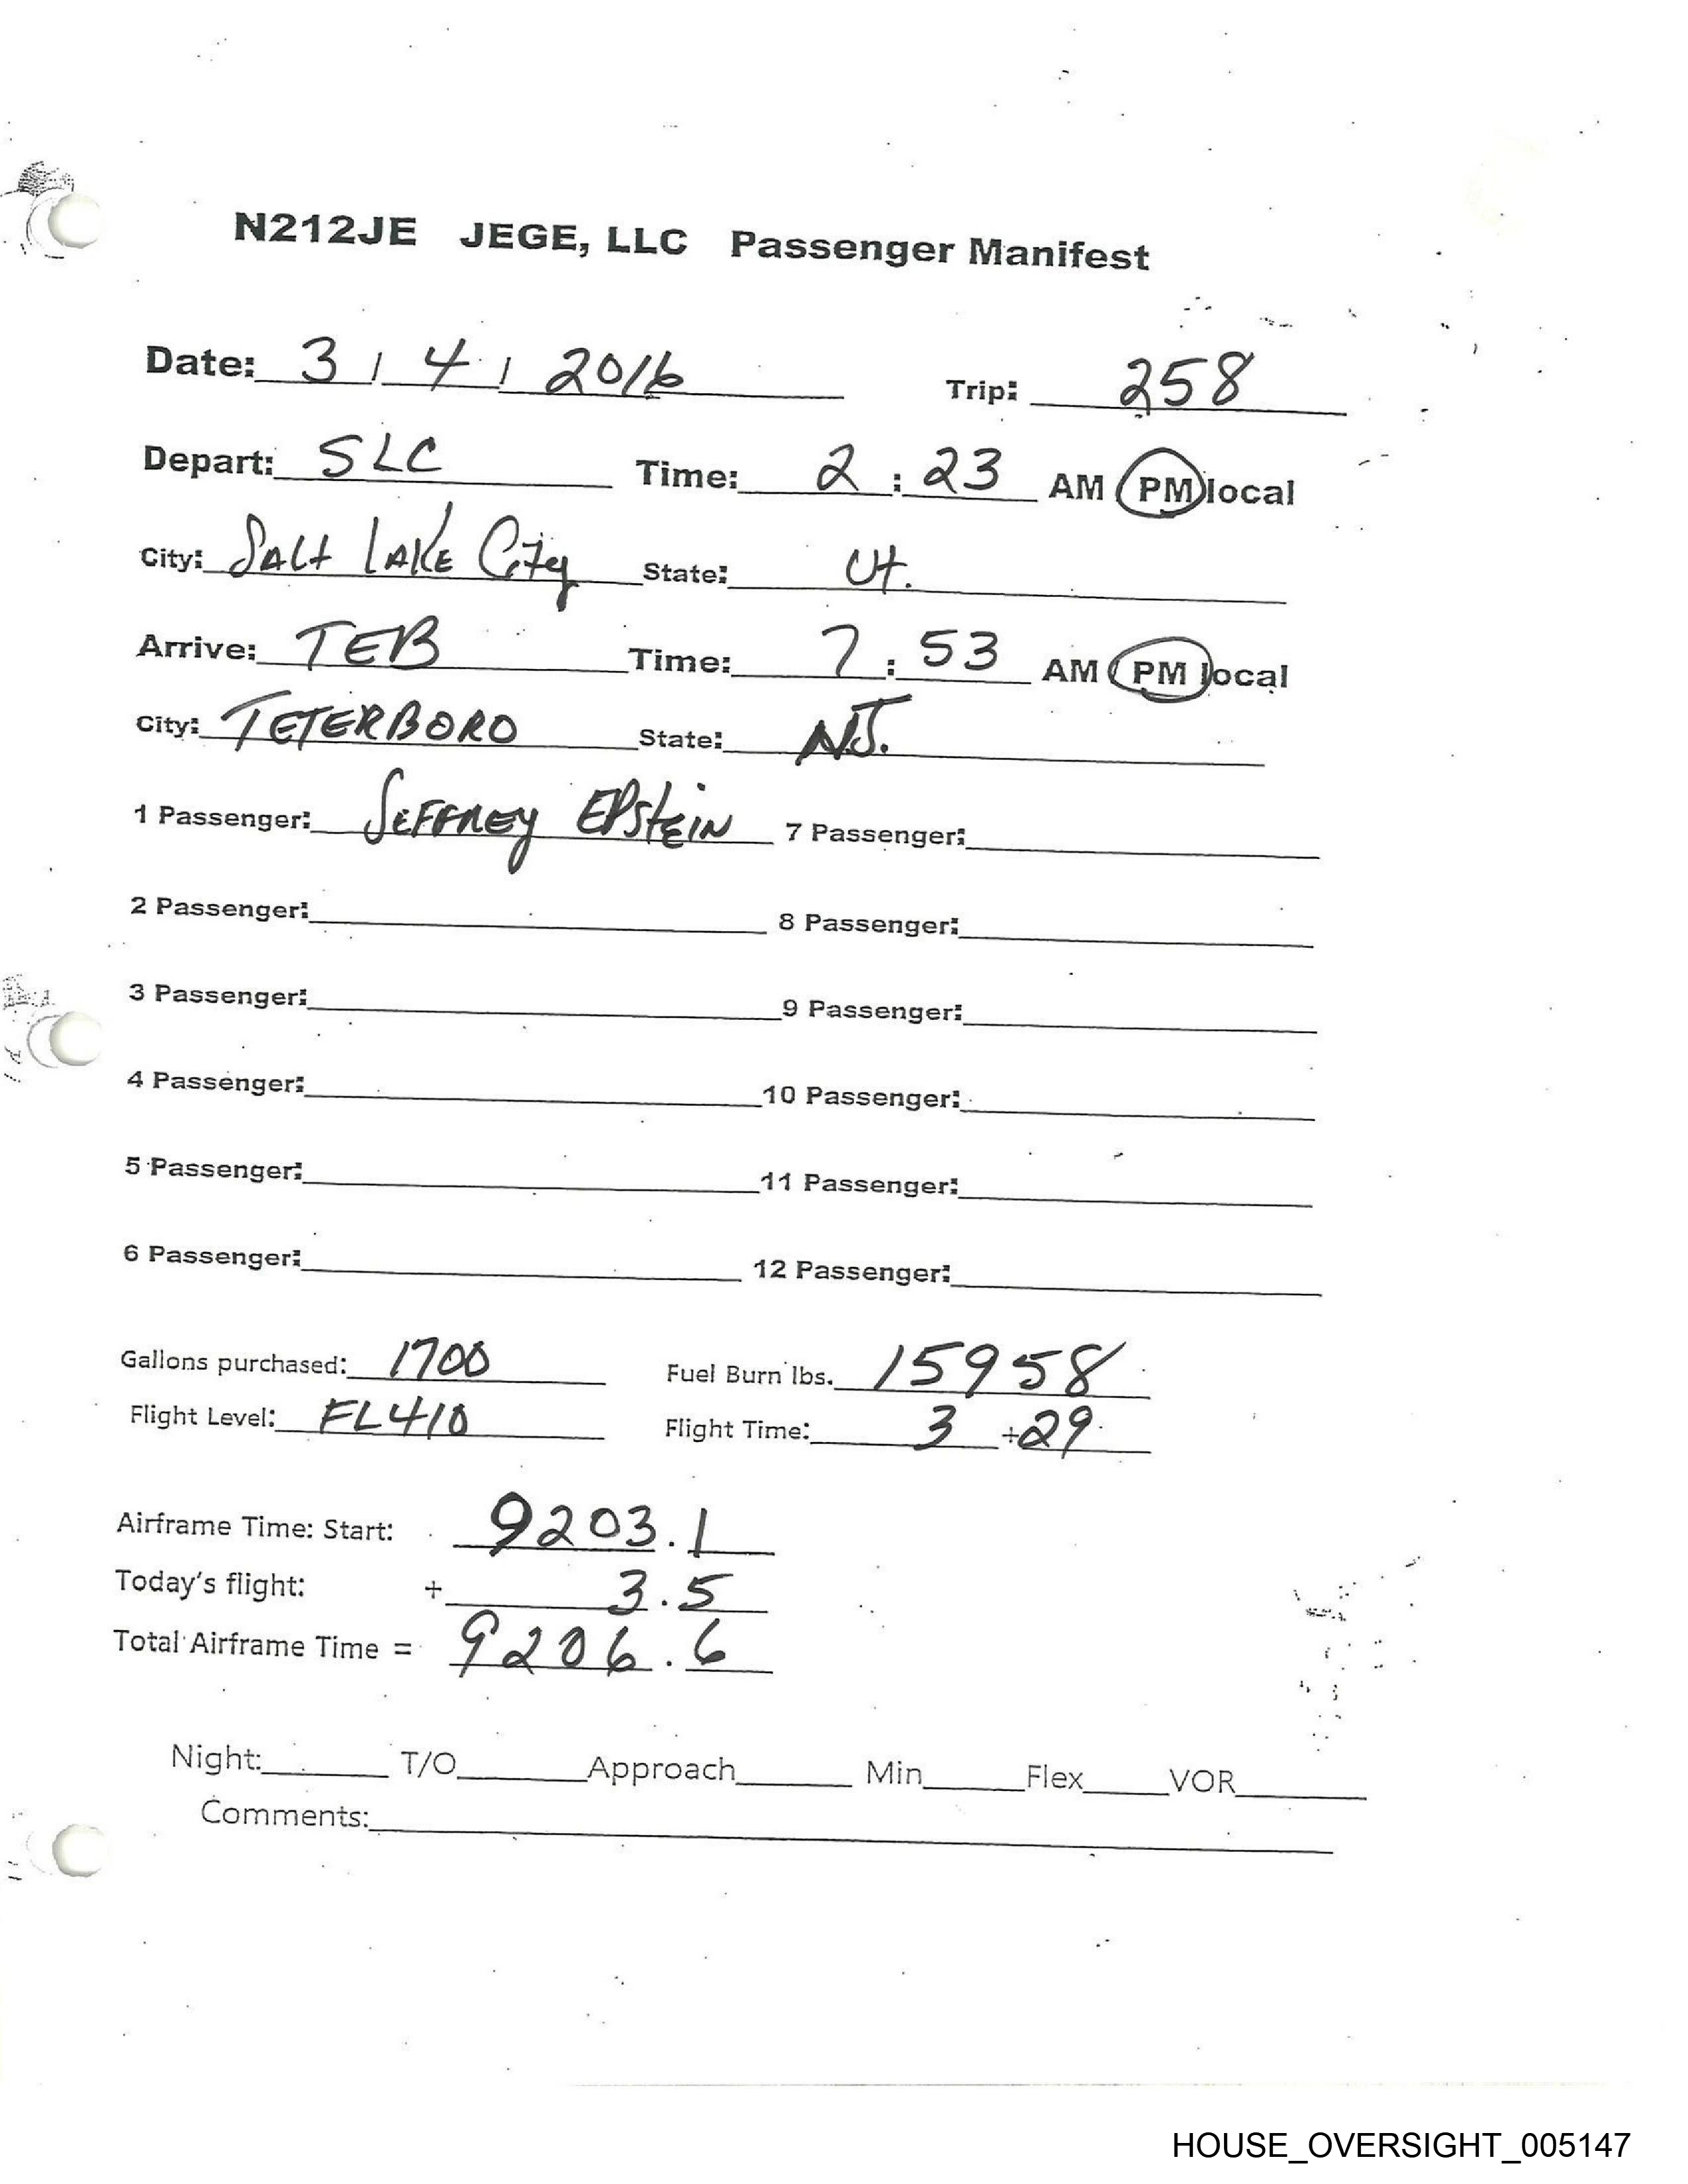 N212JE JEGE, LLC Passenger Manifest
Date: 3 / 4 / 2016 Trip: 258
Depart: SLC Time: 2 : 23 AM PM local
City: Salt Lake City State: Ut.
Arrive: TEB Time: 7 : 53 AM PM local
City: TETERBORO State: N.J.
1 Passenger: JEFFREY EPStEIN 7 Passenger:
2 Passenger: 8 Passenger:
3 Passenger: 9 Passenger:
4 Passenger: 10 Passenger:
5 Passenger: 11 Passenger:
6 Passenger: 12 Passenger:
Gallons purchased: 1700 Fuel Burn lbs. 15958
Flight Level: FL410 Flight Time: 3 + 29
Airframe Time: Start: 9203.1
Today's flight: + 3.5
Total Airframe Time = 9206.6
Night: T/O Approach Min Flex VOR
Comments:
HOUSE_OVERSIGHT_005147